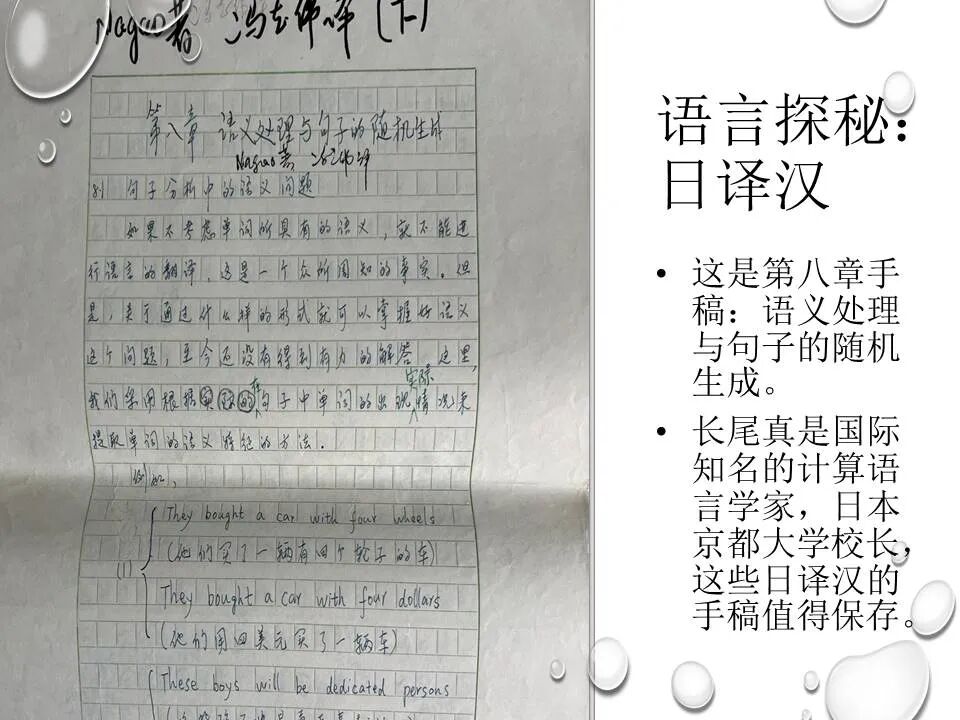 Nagao著 冯志伟译 (下)
第八章 语义处理与句子的随机生成
Nagao著 冯志伟译
8.1 句子分析中的语义问题
如果不考虑单词所具有的语义，就不能进
行语言的翻译，这是一个众所周知的事实。但
是，关于通过什么样的形式就可以掌握好语义
这个问题，至今还没有得到有力的解答。这里，
实际
我们采用根据在句子中单词的出现情况来
提取单词的语义特征的方法.
例如，
(1)
They bought a car with four wheels
(他们买了一辆有四个轮子的车)
They bought a car with four dollars
(他们用四美元买了一辆车)
These boys will be dedicated persons
语言探秘：
日译汉
• 这是第八章手
稿：语义处理
与句子的随机
生成。
• 长尾真是国际
知名的计算语
言学家，日本
京都大学校长，
这些日译汉的
手稿值得保存。